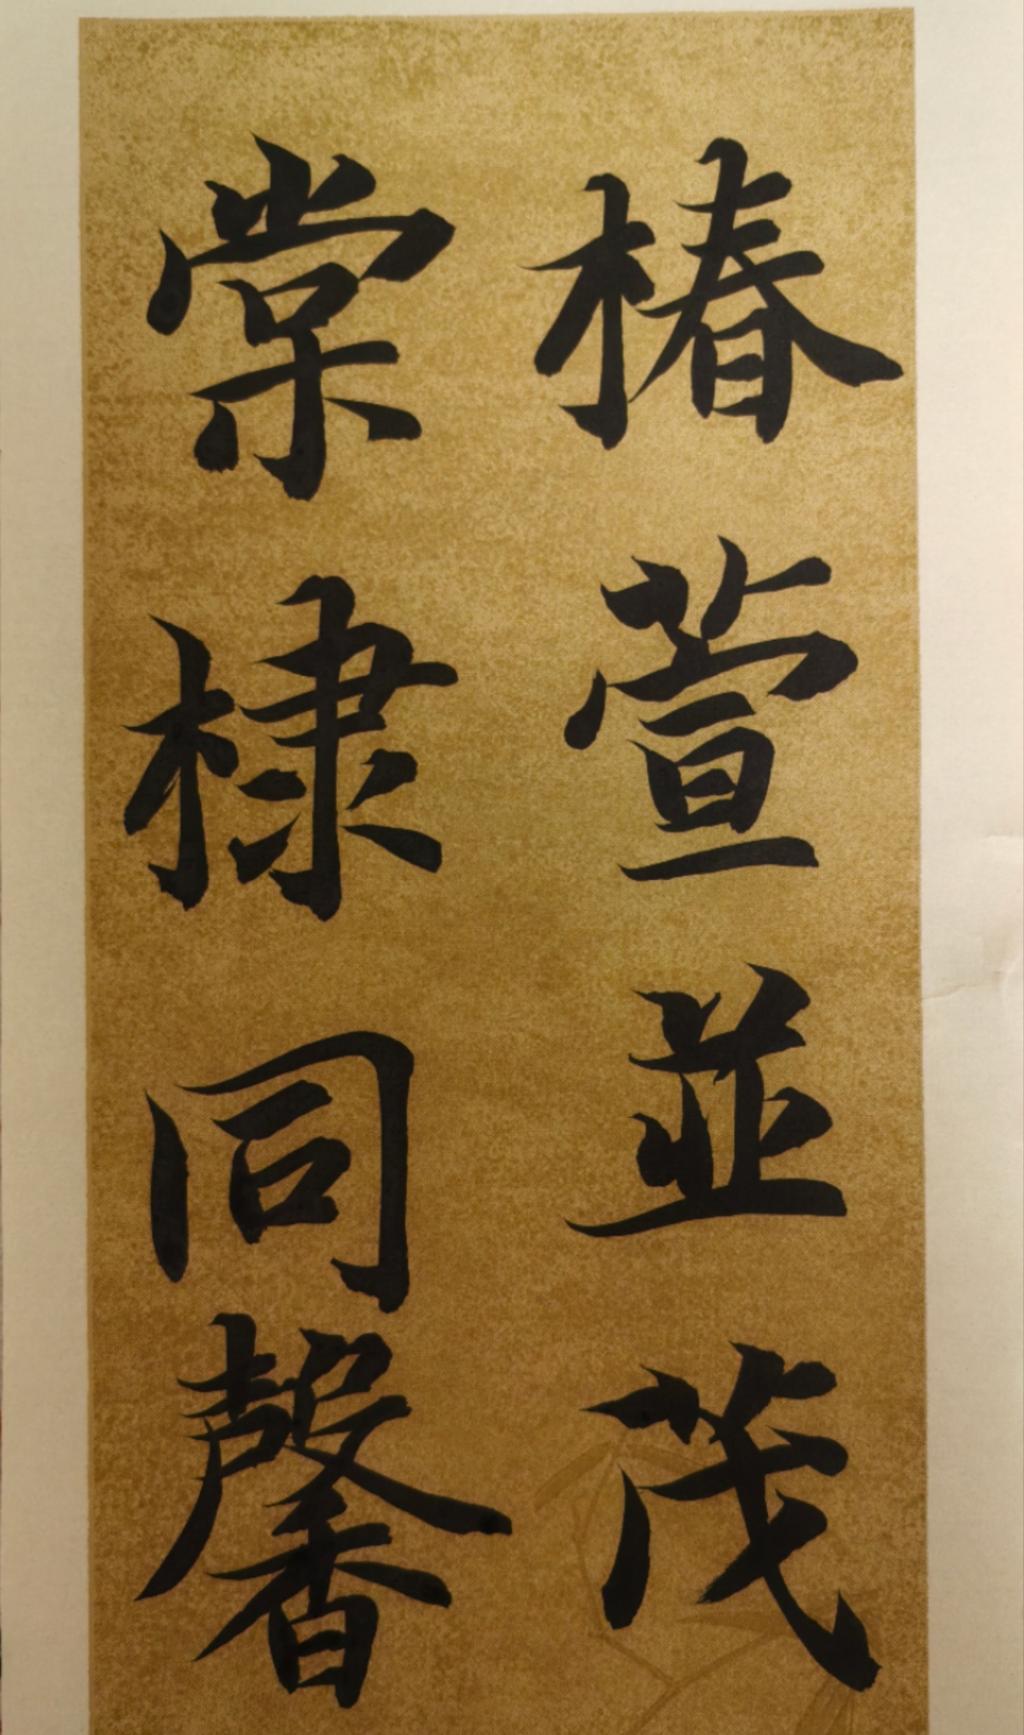 椿萱並茂
棠棣同馨